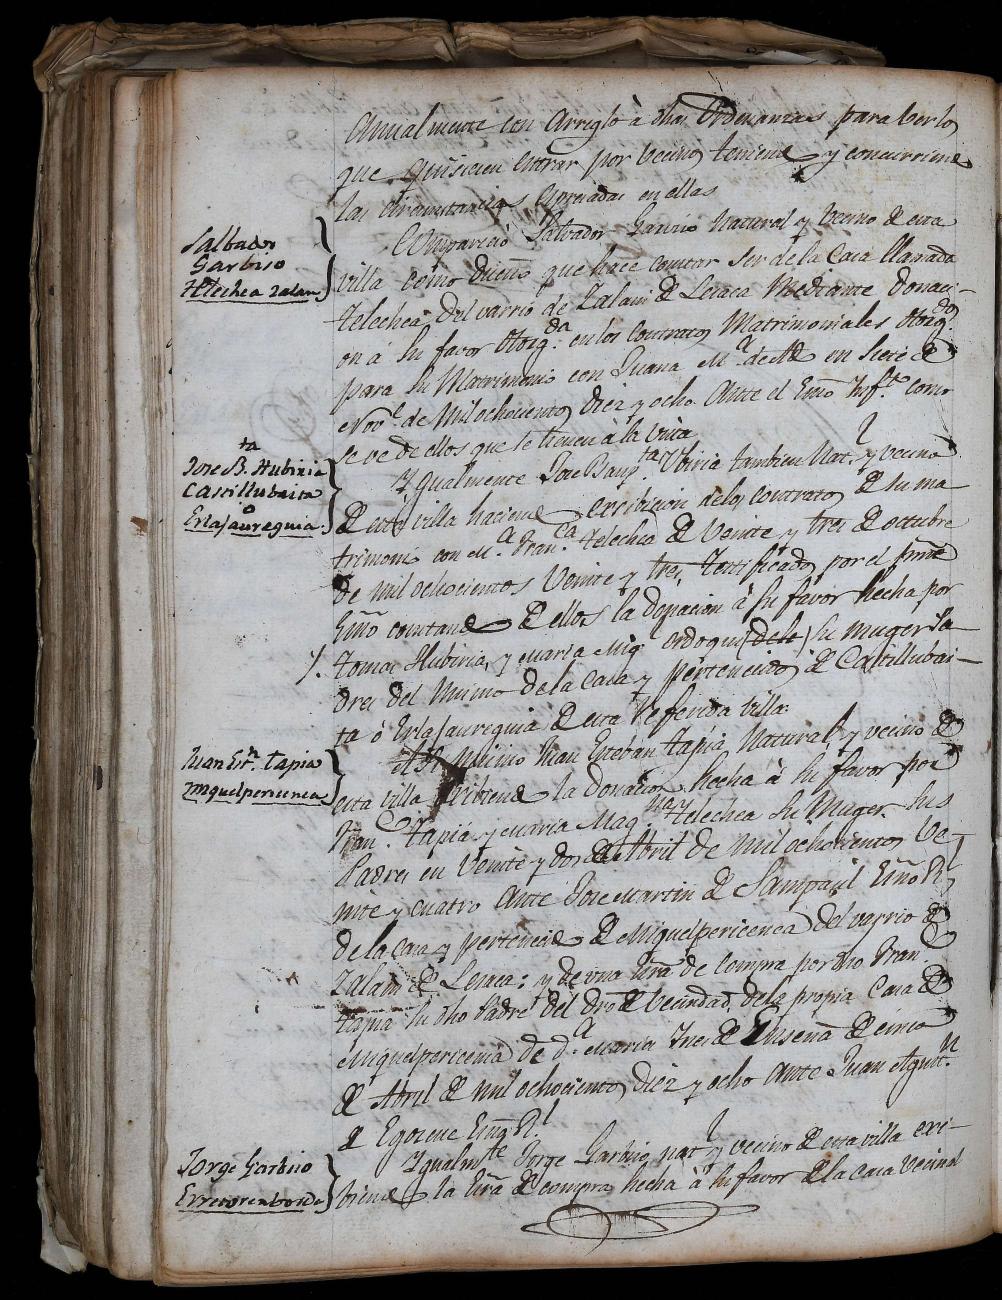 Anualmente con Arreglo à dhas Ordenanzas para berlos
que quisiesen entrar por vecinos teniend y concurriend
las circunstancias expresadas en ellas
Salbador
Garbiso
Telechea zalain
Comparecio Salvador Garviso Natural y Vecino de esta
villa como dueño que hace constar ser de la Casa llamada
telechea del varrio de Zalain de Lesaca Mediante Donaci-
on á su favor Otorgda. en los Contratos Matrimoniales Otorgdos
para su Matrimonio con Juana Ma. de en siete de
Nove. de Mil ochocientos Diez y ocho Ante el Esno Infto. como
se ve de ellos que se tienen à la vista
Jose Bta. Hubiria
Castillubaita
o
Erlajaureguia.
Ygualmente Jose Baupta. Ubiria tambien Natl. y vecino
de esta villa haciend exsibicion de los contratos de su ma
trimoni con Ma. Franca. telechea de Veinte y tres de octubre
de mil ochocientos Veinte y tres, testificados por el preste
Esno constand de ellos la donacion à su favor hecha por
tomas Hubiria, y maria Migl. ordoqui (dele) su muger Pa-
dres del mismo de la Casa y pertenecidos de Castillubai-
ta ó Erlajaureguia de esta referida villa.
Juan Estn. tapia
miquelpericenea
Asi Mismo Juan Esteban tapia, Natural y vecino de
esta villa exibiend la donacion hecha à su favor por
Fran. tapia y maria Magna. telechea su Muger. sus
Padres en Veinte y dos de Abril de mil ochocientos Ve-
inte y cuatro Ante Jose martin de Sampaul Esno Rl
de la casa y pertenecid de Miquelpericenea del varrio de
Zalain de Lesaca; y de una Esra de compra por dho Fran.
tapia su dho Padre del dro de Vecindad, de la propia Casa de
Miquelpericenea de da. Maria Ines de de cinco
de Abril de mil ochocientos, diez y ocho Ante Juan Agustn.
de Egozcue Esno Rl.
Jorge Garbiso
Erretorenborda
Ygualmte. Jorge Garbiso natl. y vecino de esta villa exi-
biend la Esra de compra hecha à su favor de la Casa Vecinal